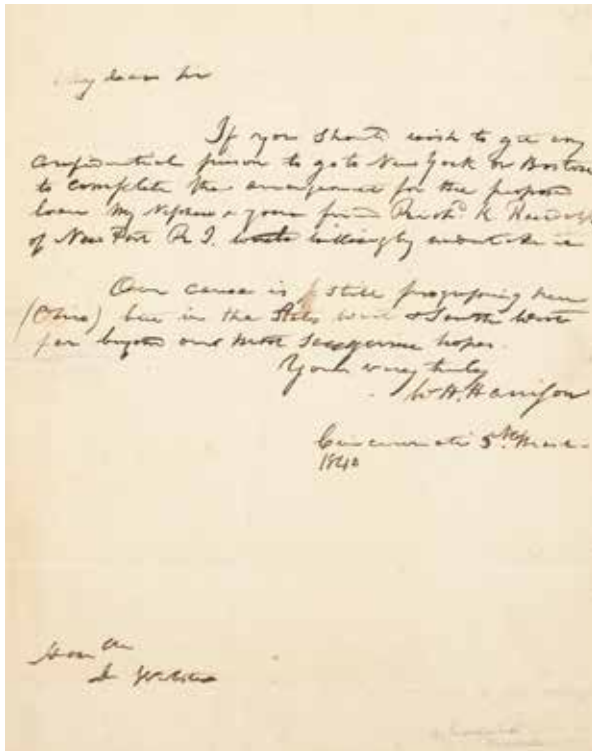 My dear Sir
If you should wish to get any
confidential person to go to New York or Boston
to complete the arrangement for the proposed
loan my Nephew & your friend Richd K Randolph
of New Port R I. would willingly undertake it
Our cause is still progressing here
(Ohio) but in the States West & South West
far beyond our most sanguine hopes.
Yours very truly
W H. Harrison
Cincinnati 5th March
1840
Honble
D Webster